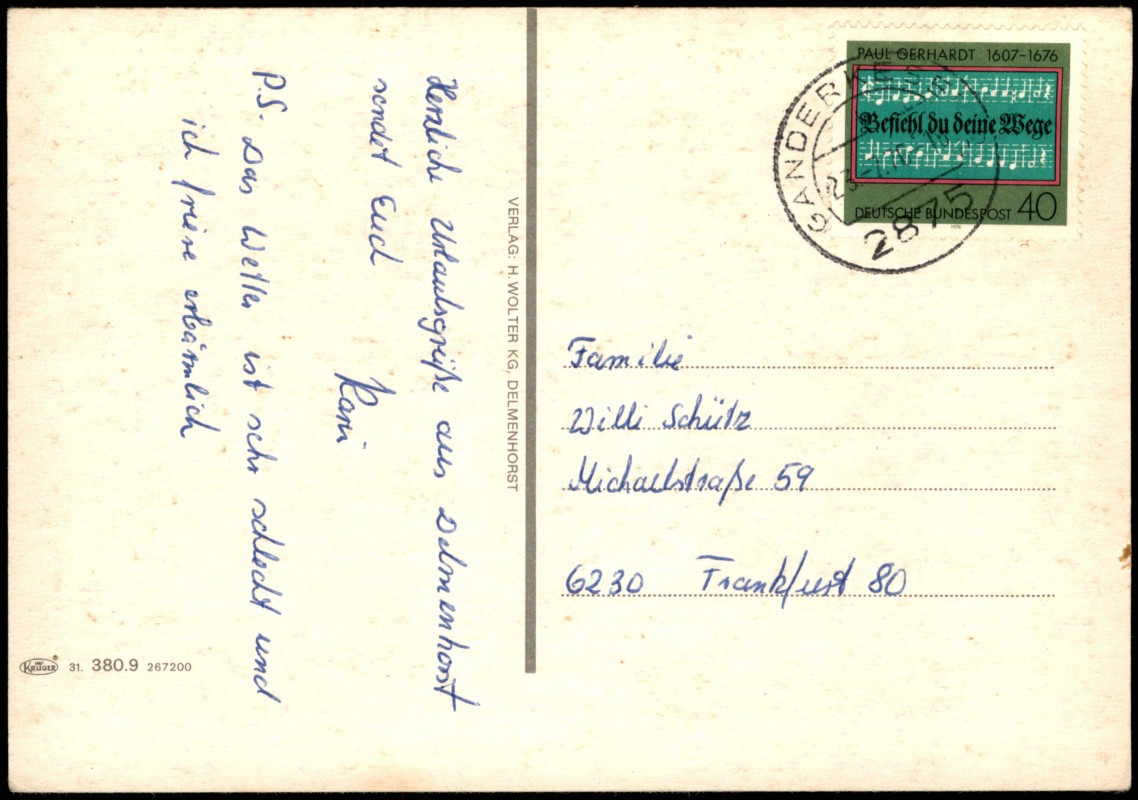 Herzliche Urlaubsgrüße aus Delmenhorst
sendet Euch
P.S. Das Wetter ist sehr schlecht und
ich friere erbärmlich
VERLAG: H. WOLTER KG, DELMENHORST
KRÜGER
31. 380.9 267200
PAUL GERHARDT 1607-1676
Befiehl du deine Wege
DEUTSCHE BUNDESPOST 40
1976
2875
Familie
Willi Schütz
Michaelstraße 59
6230 Frankfurt 80